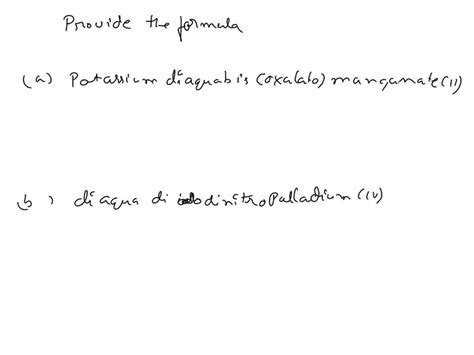 Provide the formula
(a) Potassium diaquabis (oxalato) manganate (II)
b) diaqua di dinitro Palladium (IV)